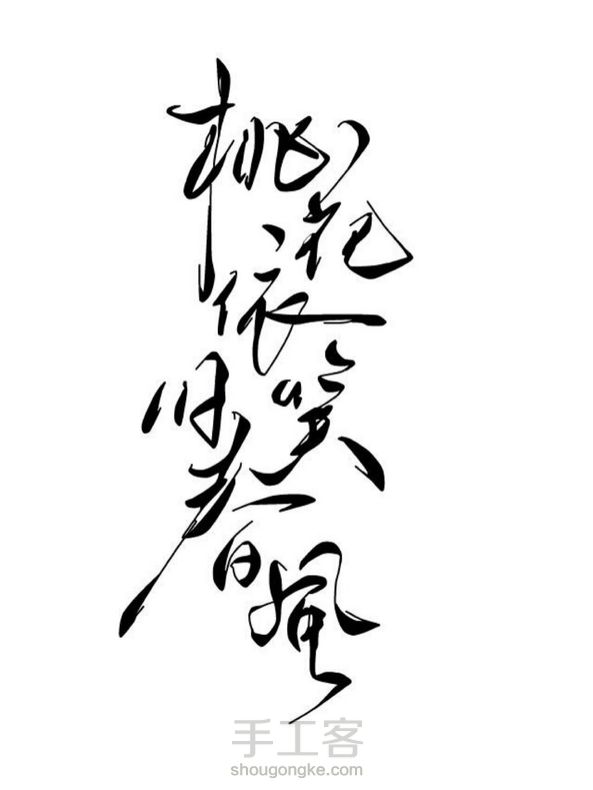 桃花依旧笑春风
手工客
shougongke.com